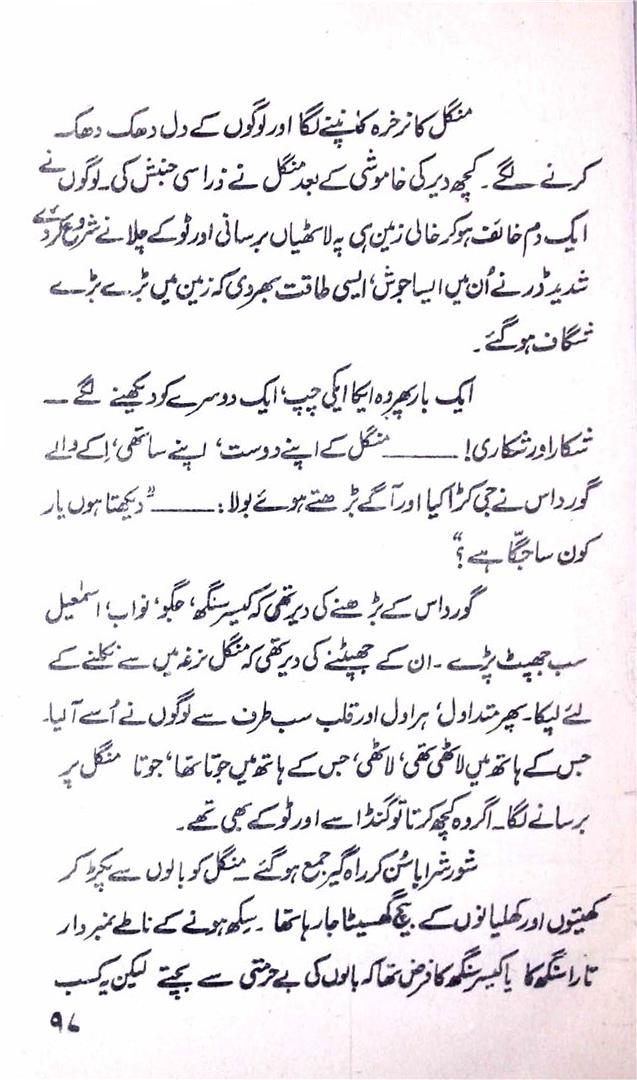 منگل کا نرخرہ کانپنے لگا اور لوگوں کے دل دھک دھک
کرنے لگے۔ کچھ دیر کی خاموشی کے بعد منگل نے ذرا سی جنبش کی۔ لوگوں نے
ایک دم خائف ہو کر خالی زمین ہی پہ لاٹھیاں برسانی اور ٹوکے چلانے شروع کر دیے
شدید ڈر نے اُن میں ایسا جوش، ایسی طاقت بھر دی کہ زمین میں بڑے بڑے
شگاف ہو گئے۔
ایک بار پھر وہ ایکا ایکی چپ، ایک دوسرے کو دیکھنے لگے ــــ
شکار اور شکاری! ــــــــ منگل کے اپنے دوست، اپنے ساتھی، اِکے والے
گورداس نے جی کڑا کیا اور آگے بڑھتے ہوئے بولا: ــــــــ ”دیکھتا ہوں یار
کون سا جگّا ہے؟“
گورداس کے بڑھنے کی دیر تھی کہ کیسر سنگھ، جگو، نواب، اسمٰعیل
سب جھپٹ پڑے۔ ان کے جھپٹنے کی دیر تھی کہ منگل نرغہ میں سے نکلنے کے
لئے لپکا۔ پھر متداول، ہراول اور قلب سب طرف سے لوگوں نے اُسے آلیا۔
جس کے ہاتھ میں لاٹھی تھی، لاٹھی، جس کے ہاتھ میں جوتا تھا، جوتا منگل پر
برسانے لگا۔ اگر وہ کچھ کرتا تو گنڈاسے اور ٹوکے بھی تھے۔
شور شرابا سُن کر راہ گیر جمع ہو گئے۔ منگل کو بالوں سے پکڑ کر
کھیتوں اور کھلیانوں کے بیچ گھسیٹا جا رہا تھا۔ سکھ ہونے کے ناطے نمبردار
تارا سنگھ کا یا کیسر سنگھ کا فرض تھا کہ بالوں کی بے حرمتی سے بچتے لیکن یہ کسب
۹۷